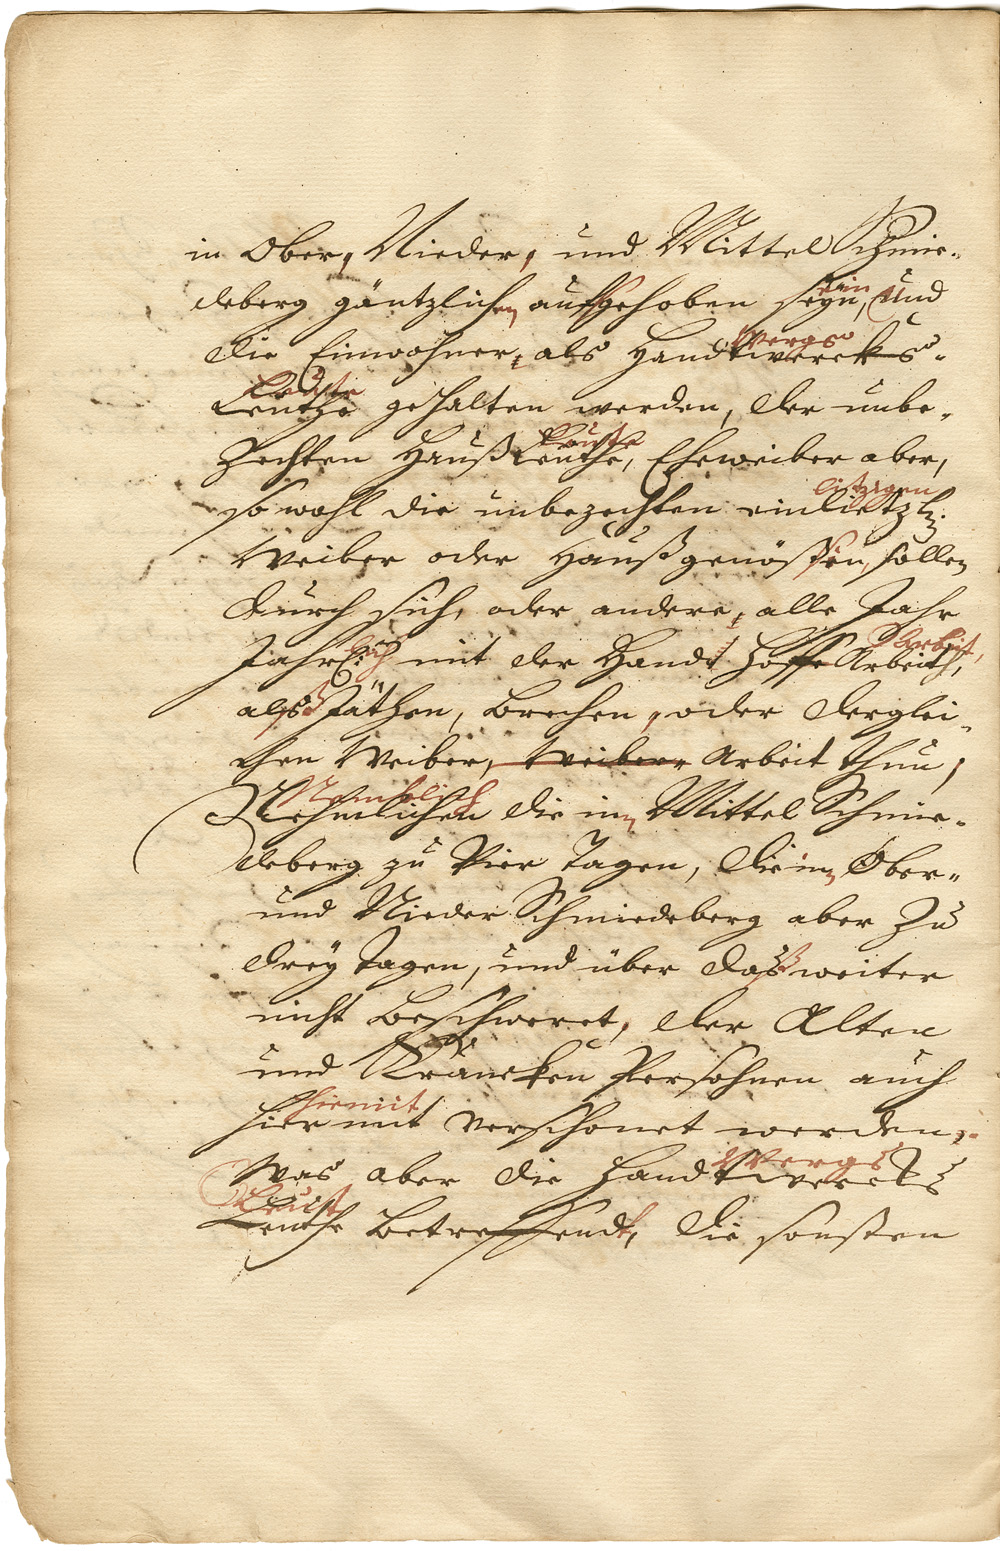 in Ober, Nieder, und Mittel Schmie-
deberg gäntzlichen aufgehoben seyn, und
sein
die Einwohner, als Handtwercks-
Wergs
Leuthe gehalten werden, der unbe-
Leuste
Zechten Haußleuthe, Eheweiber aber,
so wohl die unbezechten einlietz
litzigen
Weiber oder Haußgenößen, sollen
durch sich, oder andere, alle Jahr
Jährl: mit der Handt Hoffe Arbeith,
lich Arbeit,
alß Jäthen, brechen, oder derglei-
chen Weiber, Weiber Arbeit thun,
Nehmlichen die im Mittel Schmie-
Nemblich
deberg zu Vier Tagen, die im Ober-
und Nieder Schmiedeberg aber Zu
drey Tagen, und über daß weiter
nicht beschweret, der Alten
und Krancken Persohnen auch
hiermit verschonet werden,
hiemit
Was aber die Handtwercks
Wergs
Leuthe betreffendt, die sonsten